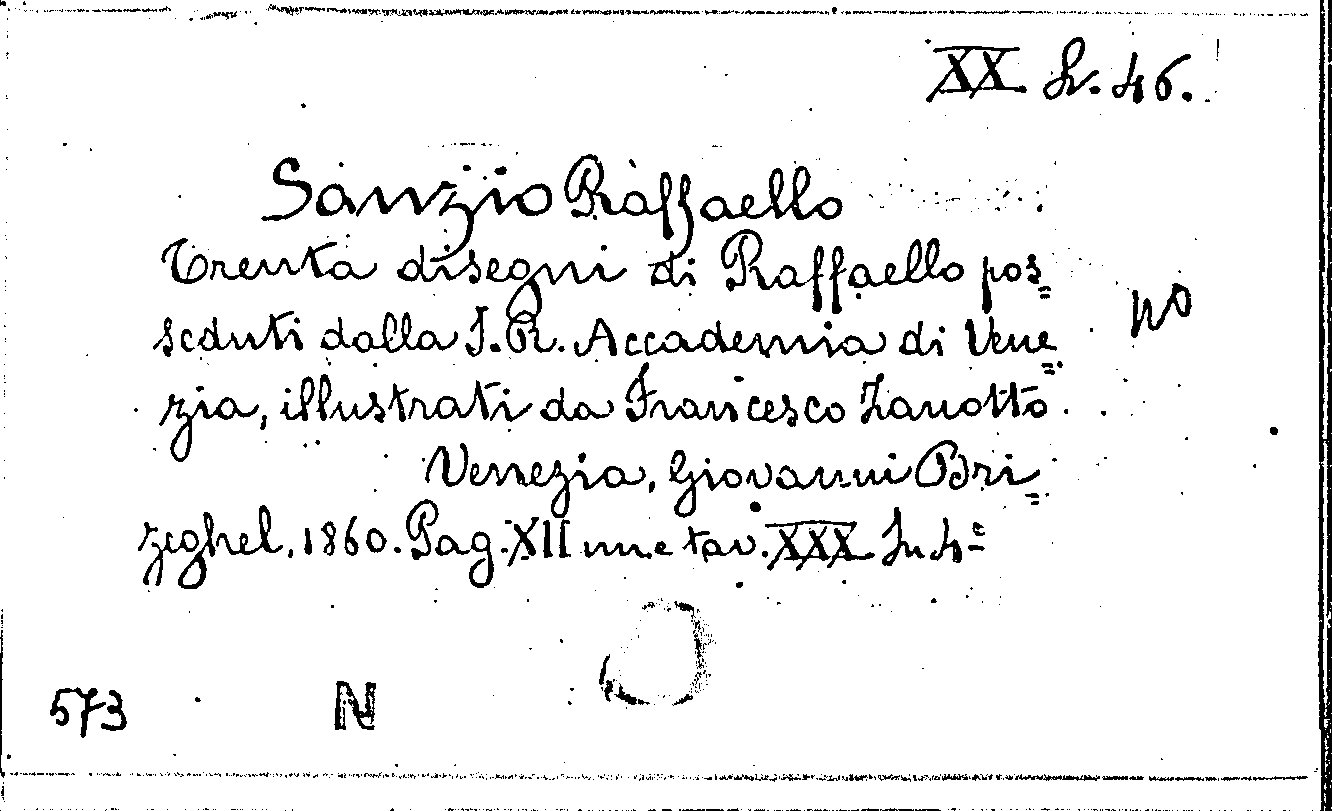 XX. L. 46.
Sanzio Raffaello
Trenta disegni di Raffaello pos=
seduti dalla I. R. Accademia di Vene=
zia, illustrati da Francesco Zanotto.
no
Venezia, Giovanni Bri=
zeghel, 1860. Pag. XII nn. e tav. XXX. In 4º
573 N